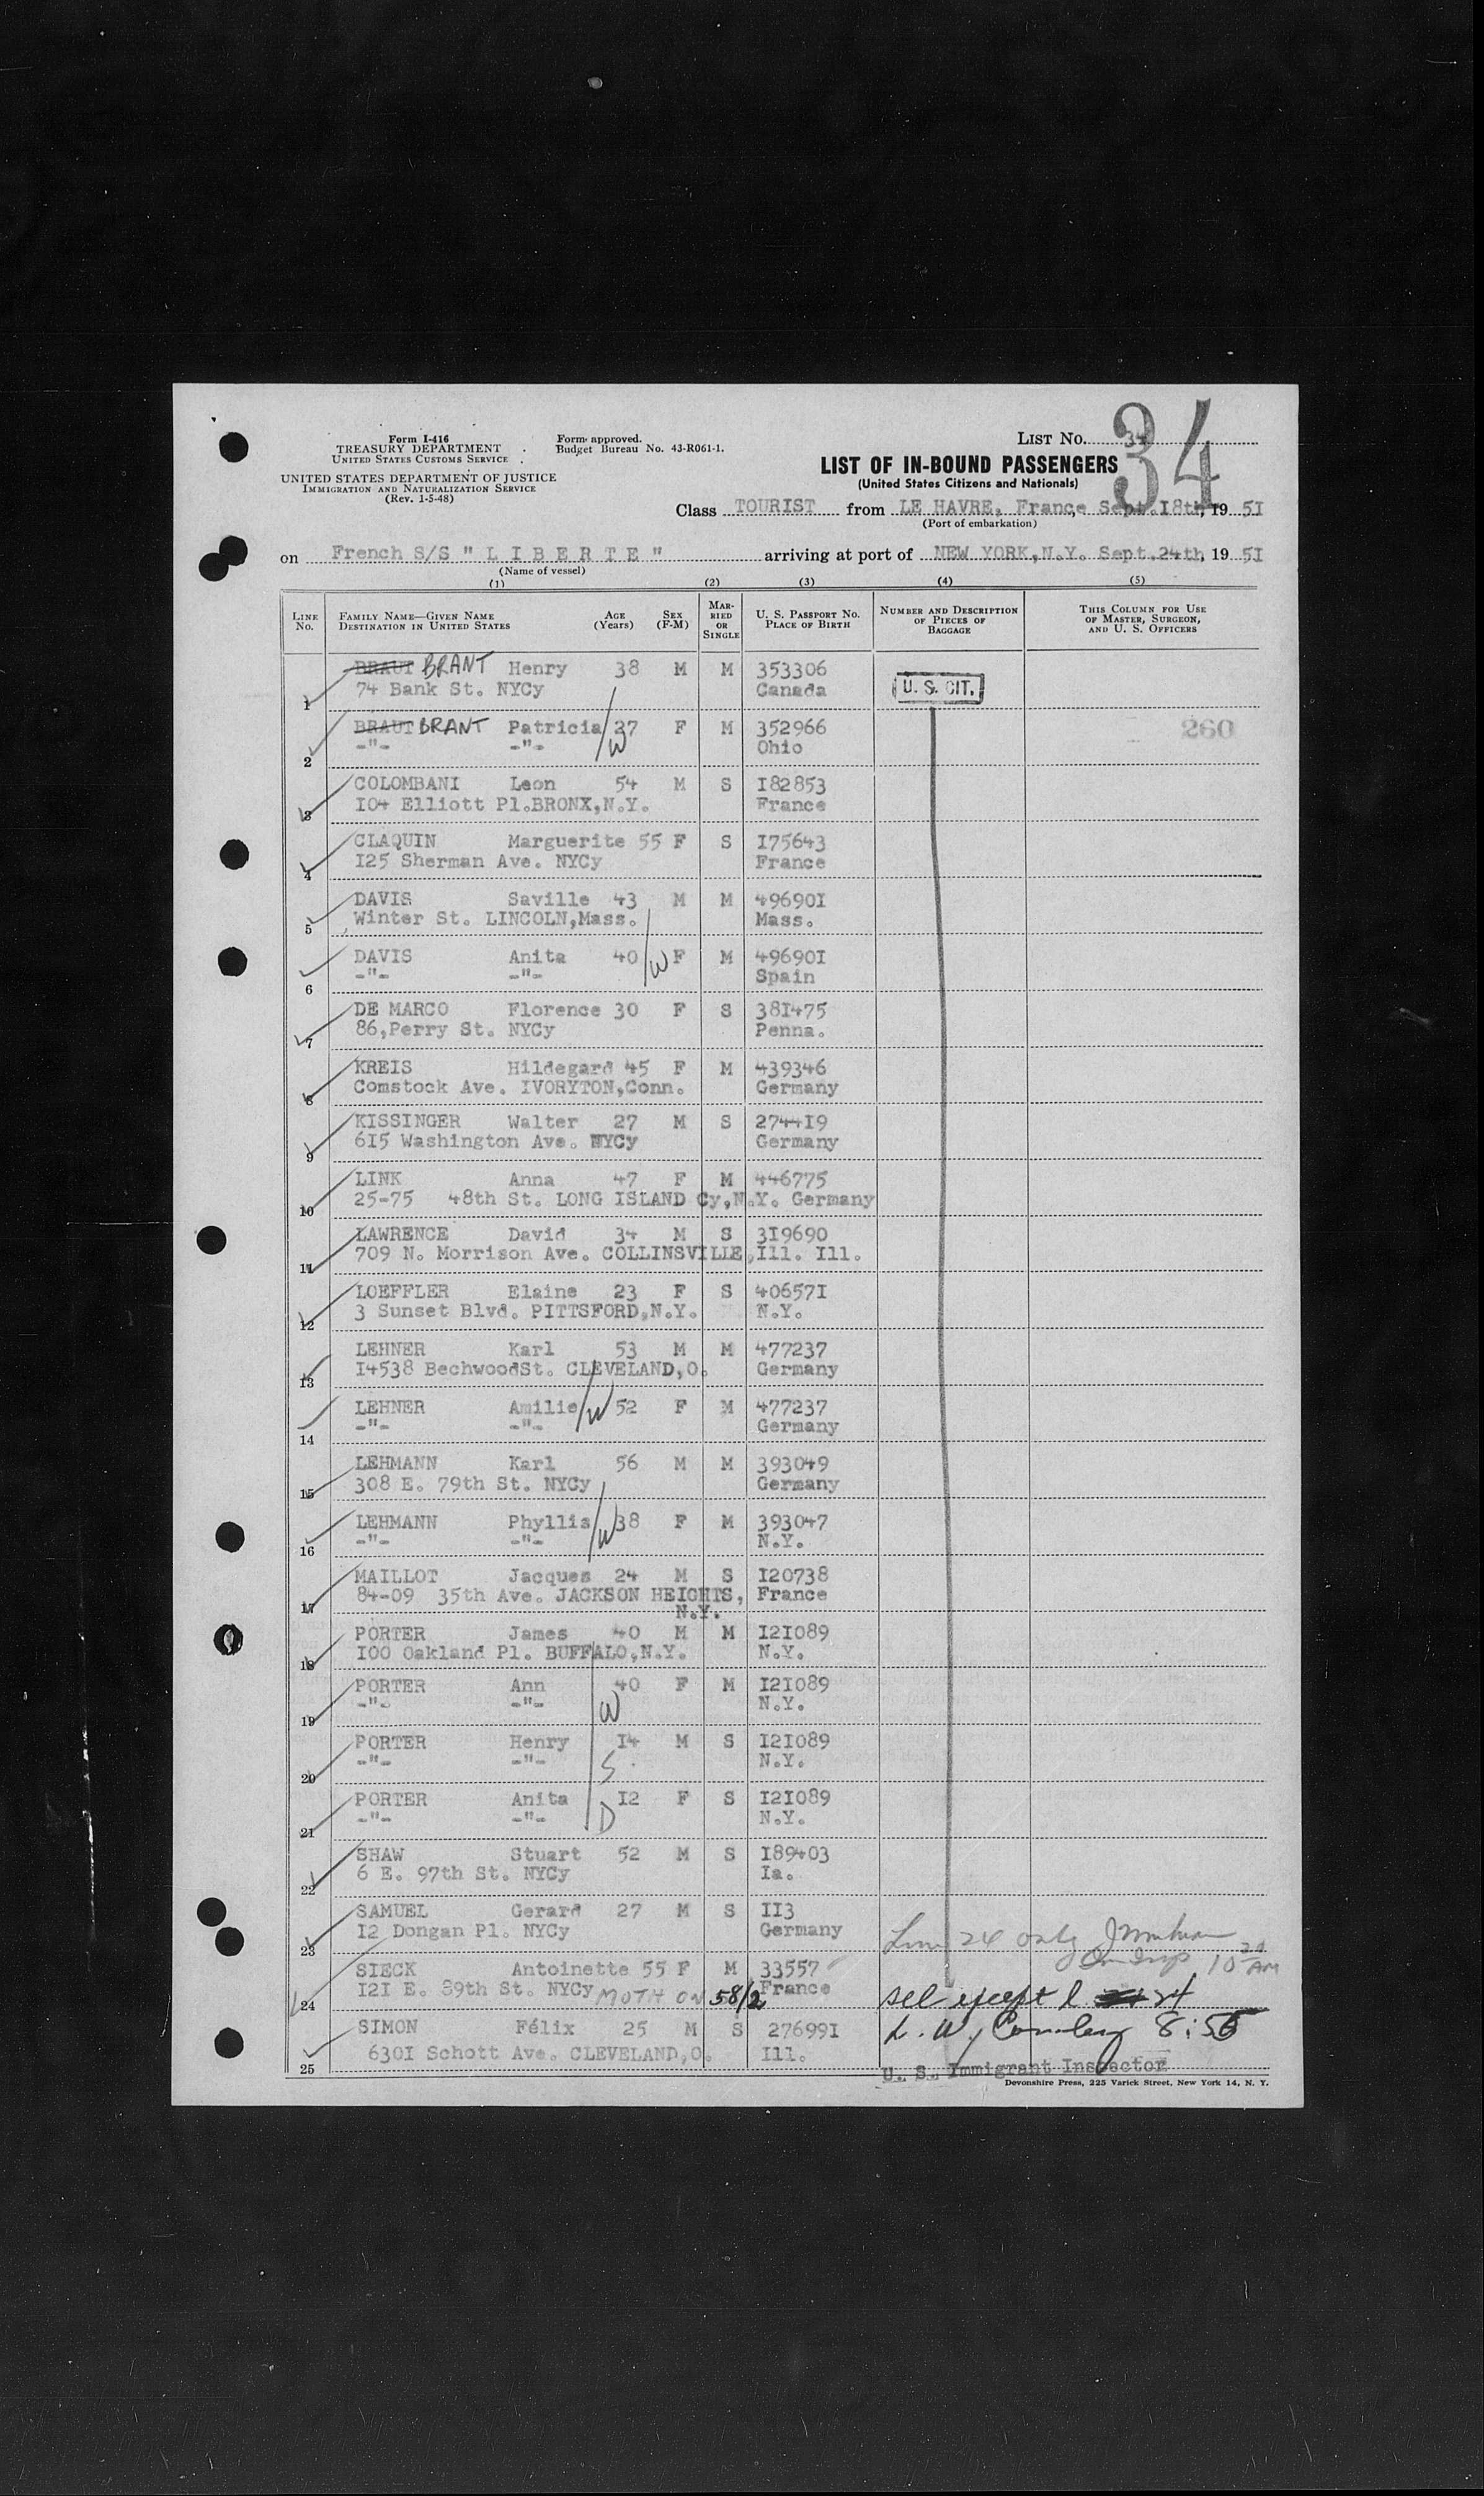 Form I-416
TREASURY DEPARTMENT
UNITED STATES CUSTOMS SERVICE
UNITED STATES DEPARTMENT OF JUSTICE
IMMIGRATION AND NATURALIZATION SERVICE
(Rev. 1-5-48)
Form approved.
Budget Bureau No. 43-R061-1.
LIST NO. 34
34
LIST OF IN-BOUND PASSENGERS
(United States Citizens and Nationals)
Class TOURIST from LE HAVRE, France, Sept.I8th, 19 5I
(Port of embarkation)
on French S/S " L I B E R T E " arriving at port of NEW YORK,N.Y. Sept.24th, 19 5I
(Name of vessel)
(1) (2) (3) (4) (5)
LINE NO. FAMILY NAME—GIVEN NAME DESTINATION IN UNITED STATES AGE (Years) SEX (F-M) MARRIED OR SINGLE U. S. PASSPORT NO. PLACE OF BIRTH NUMBER AND DESCRIPTION OF PIECES OF BAGGAGE THIS COLUMN FOR USE OF MASTER, SURGEON, AND U. S. OFFICERS
BRAUT BRANT Henry 38 M M 353306
1 74 Bank St. NYCy Canada U. S. CIT.
BRAUT BRANT Patricia W 37 F M 352966 260
2 -"- -"- Ohio
COLOMBANI Leon 54 M S I82853
3 I04 Elliott Pl.BRONX,N.Y. France
CLAQUIN Marguerite 55 F S I75643
4 I25 Sherman Ave. NYCy France
DAVIS Saville 43 M M 49690I
5 Winter St. LINCOLN,Mass. Mass.
DAVIS Anita 40 W F M 49690I
6 -"- -"- Spain
DE MARCO Florence 30 F S 38I475
7 86,Perry St. NYCy Penna.
KREIS Hildegard 45 F M 439346
8 Comstock Ave. IVORYTON,Conn. Germany
KISSINGER Walter 27 M S 2744I9
9 6I5 Washington Ave. NYCy Germany
LINK Anna 47 F M 446775
10 25-75 48th St. LONG ISLAND Cy,N.Y. Germany
LAWRENCE David 34 M S 3I9690
11 709 N. Morrison Ave. COLLINSVILLE,Ill. Ill.
LOEFFLER Elaine 23 F S 40657I
12 3 Sunset Blvd. PITTSFORD,N.Y. N.Y.
LEHNER Karl 53 M M 477237
13 I4538 BechwoodSt. CLEVELAND,O. Germany
LEHNER Amilie W 52 F M 477237
14 -"- -"- Germany
LEHMANN Karl 56 M M 393049
15 308 E. 79th St. NYCy Germany
LEHMANN Phyllis W 38 F M 393047
16 -"- -"- N.Y.
MAILLOT Jacques 24 M S I20738
17 84-09 35th Ave. JACKSON HEIGHTS, France
N.Y.
PORTER James 40 M M I2I089
18 I00 Oakland Pl. BUFFALO,N.Y. N.Y.
PORTER Ann 40 F M I2I089
19 -"- -"- W N.Y.
PORTER Henry I4 M S I2I089
20 -"- -"- S N.Y.
PORTER Anita I2 F S I2I089
21 -"- -"- D N.Y.
SHAW Stuart 52 M S I89403
22 6 E. 97th St. NYCy Ia.
SAMUEL Gerard 27 M S II3
23 I2 Dongan Pl. NYCy Germany
Line 24 only
SIECK Antoinette 55 F M 33557 10 20 AM
24 I2I E. 89th St. NYCy MOTH ON 58/2 France
except l 24
SIMON Félix 25 M S 27699I 8:55
25 630I Schott Ave. CLEVELAND,O. Ill.
U. S. Immigrant Inspector
Devonshire Press, 225 Varick Street, New York 14, N. Y.